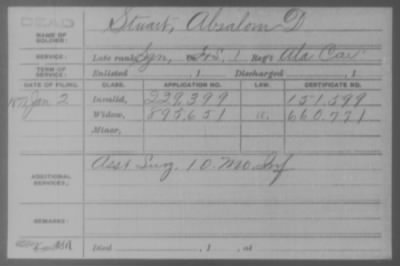 DEAD
NAME OF SOLDIER: Stuart, Absalom D
SERVICE: Late rank Sgn, F&S, 1 Reg't Ala Cav
TERM OF SERVICE: Enlisted , 1 Discharged , 1
DATE OF FILING. CLASS. APPLICATION NO. LAW. CERTIFICATE NO.
Jan 2 Invalid, 229,399 151,599
Widow, 895,651 660,771
Minor,
ADDITIONAL SERVICES: Asst Surg, 10. Mo. Inf
REMARKS:
Died , 1 , at